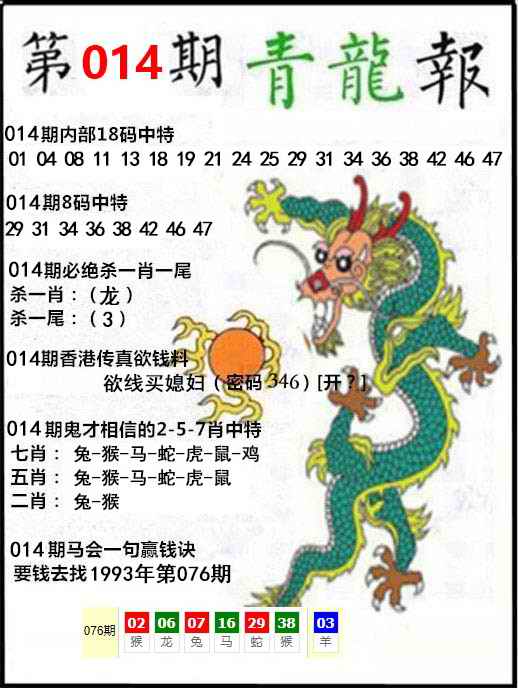 第014期青龍報
014期内部18码中特
01 04 08 11 13 18 19 21 24 25 29 31 34 36 38 42 46 47
014期8码中特
29 31 34 36 38 42 46 47
014期必绝杀一肖一尾
杀一肖：（龙）
杀一尾：（3）
014期香港传真欲钱料
欲线买媳妇（密码346）[开？]
014期鬼才相信的2-5-7肖中特
七肖：兔-猴-马-蛇-虎-鼠-鸡
五肖：兔-猴-马-蛇-虎-鼠
二肖：兔-猴
014期马会一句赢钱诀
要钱去找1993年第076期
076期 02 06 07 16 29 38 03
猴 龙 兔 马 蛇 猴 羊